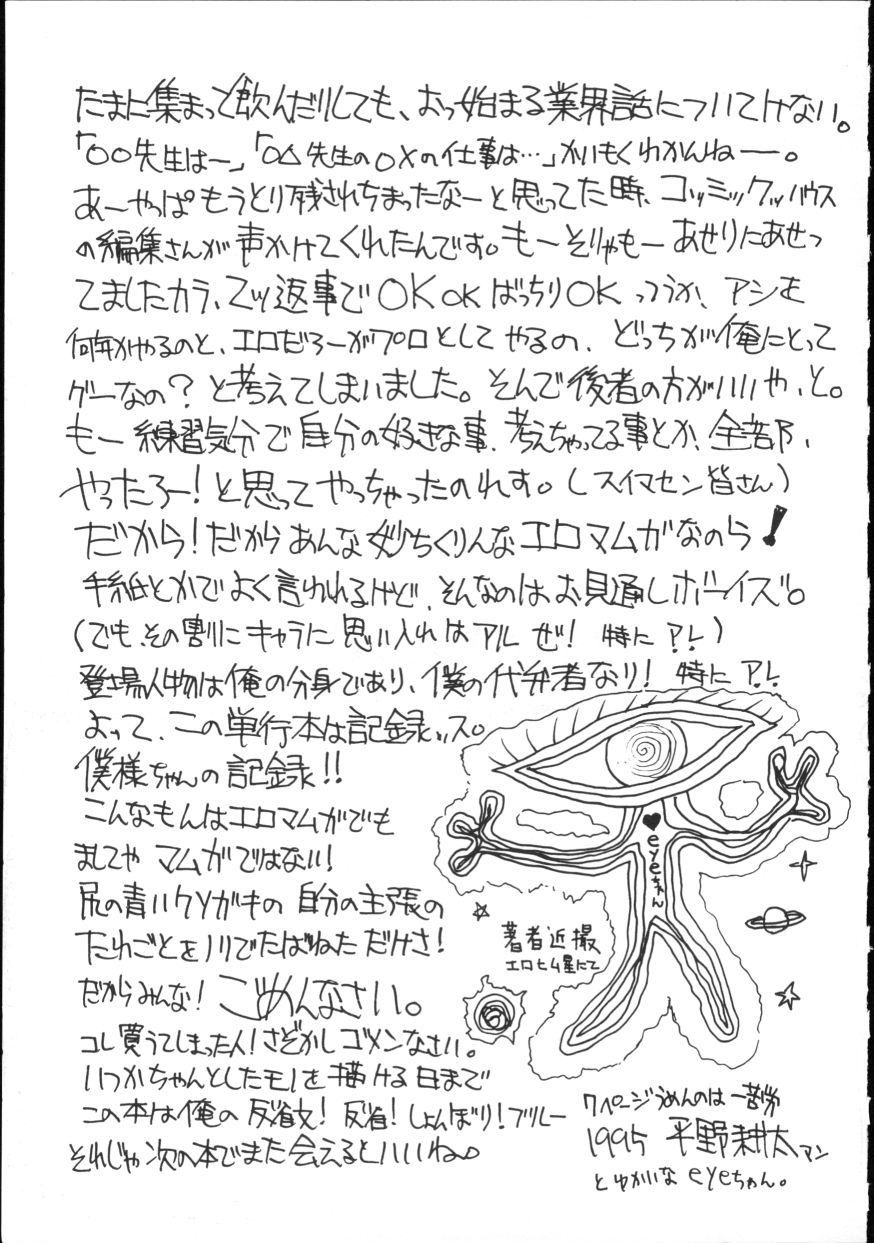 たまに集まって飲んだりしても、おっ始まる業界話についてけない。
「○○先生はー」「○△先生の○×の仕事は…」かいもくわかんねー。
あーやっぱもうとり残されちまったなーと思ってた時、コッミックッハウス
の編集さんが声かけてくれたんです。もーそりゃもーあせりにあせっ
てましたカラ、二ツ返事でOK OK ばっちりOK っつうか、アシを
何年かやるのと、エロだろーがプロとしてやるの、どっちが俺にとって
ゲーなの?と考えてしまいました。そんで後者の方がいいや、と。
もー練習気分で自分の好きな事、考えちゃってる事とか、全部、
やったろー!と思ってやっちゃったのれす。(スイマセン皆さん)
だから!だからあんな妙ちくりんなエロマムガなのら!
手紙とかでよく言われるけど、そんなのはお見通しボーイズ。
(でも、その割にキャラに思い入れはアルぜ! 特にアレ)
登場人物は俺の分身であり、僕の代弁者なり! 特にアレ
よって、この単行本は記録ッス。
僕様ちゃんの記録!!
こんなもんはエロマムガでも
ましてやマムガではない!
尻の青いクソガキの自分の主張の
たれごとをノリでたばねただけさ!
だからみんな!ごめんなさい。
コレ買うてしまった人!さぞかしゴメンなさい。
いつかちゃんとしたモノを描ける日まで
この本は俺の反省文!反省!しょんぼり!ブルー
それじゃ次の本でまた会えるといいね。
♥eyeちゃん
著者近撮
エロヒム星にて
7ページうめんのは一苦労
1995 平野耕太アン
とゆかいなeyeちゃん。